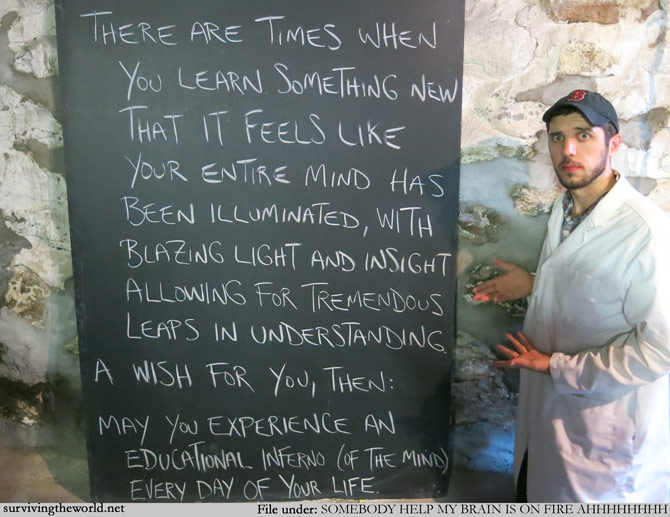 THERE ARE TIMES WHEN
YOU LEARN SOMETHING NEW
THAT IT FEELS LIKE
YOUR ENTIRE MIND HAS
BEEN ILLUMINATED, WITH
BLAZING LIGHT AND INSIGHT
ALLOWING FOR TREMENDOUS
LEAPS IN UNDERSTANDING.
A WISH FOR YOU, THEN:
MAY YOU EXPERIENCE AN
EDUCATIONAL INFERNO (OF THE MIND)
EVERY DAY OF YOUR LIFE.
B
survivingtheworld.net File under: SOMEBODY HELP MY BRAIN IS ON FIRE AHHHHHHHH